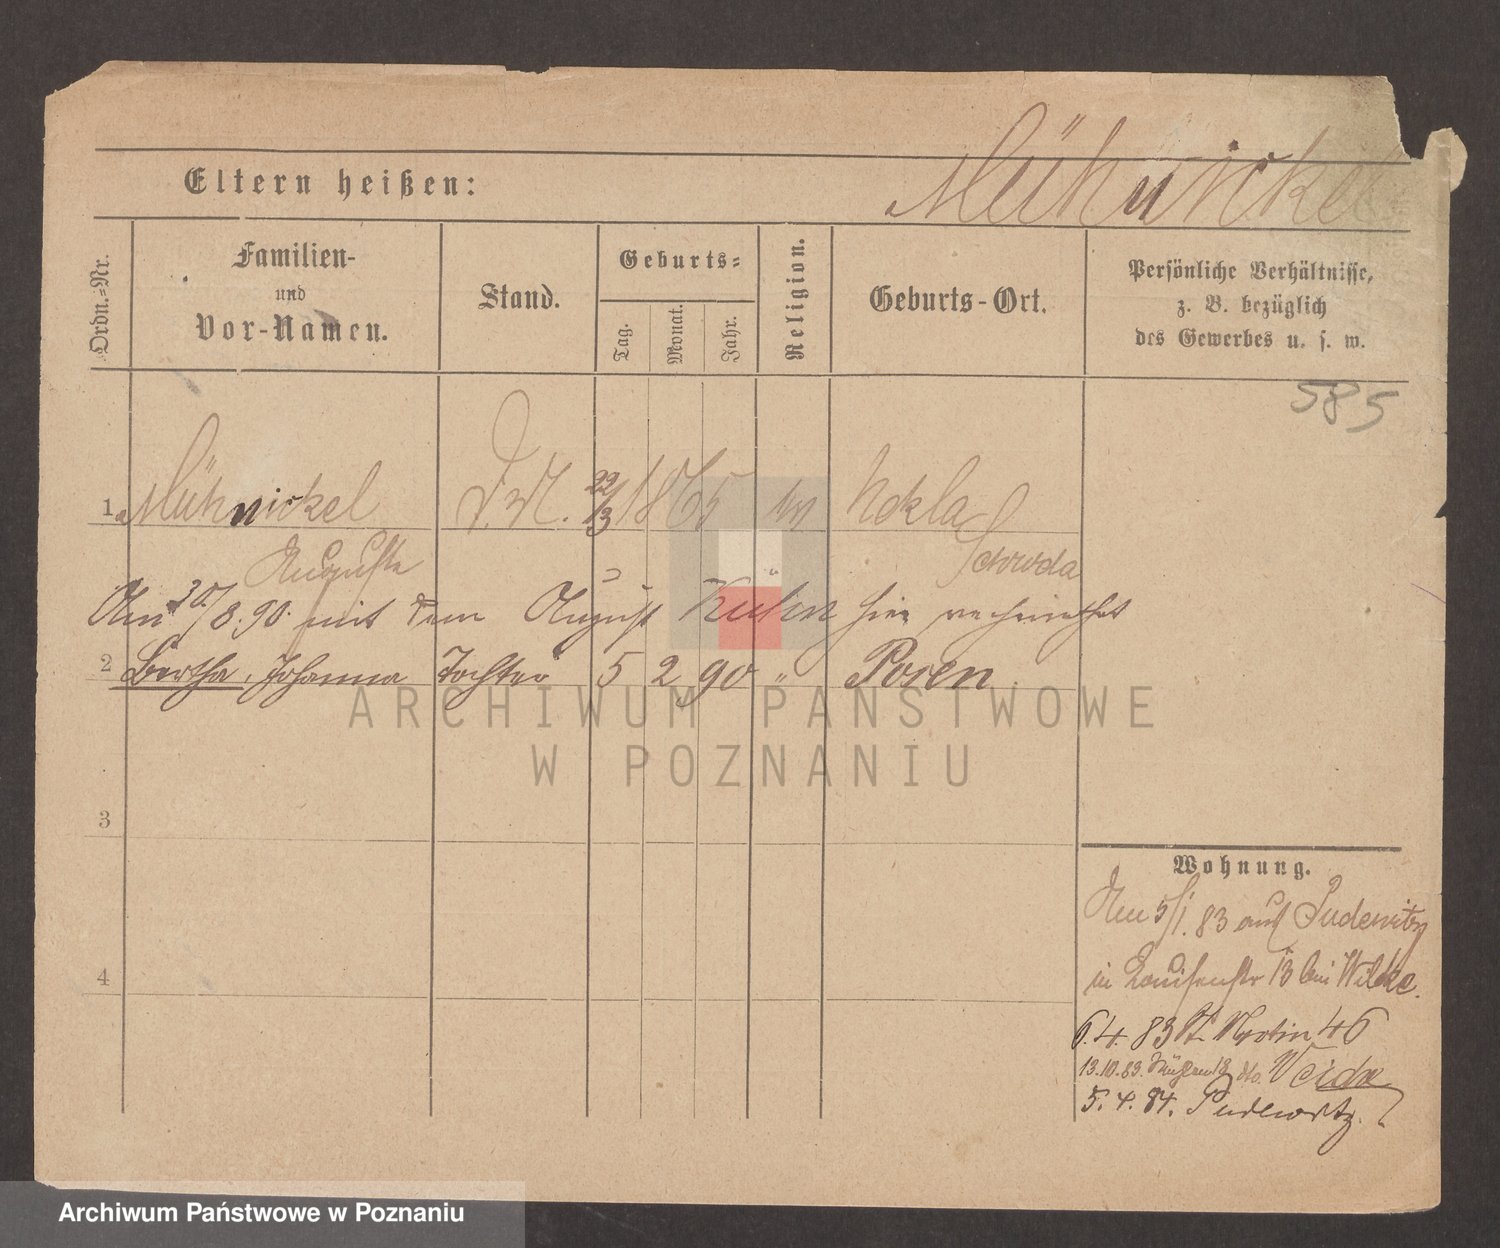 Mühnickel
Eltern heißen:
Ordn.-Nr.
Familien-
und
Vor-Namen.
Stand.
Geburts-
Tag.
Monat.
Jahr.
Religion.
Geburts-Ort.
Persönliche Verhältnisse,
z. B. bezüglich
des Gewerbes u. s. w.
585
1. Mühnickel D.M. 22/3 1865 ev Nekla
Auguste Schroda
Am 30/8.90. mit dem August Kuhn hier verheirathet
2 Bertha, Johanna Tochter 5 2 90 " Posen
ARCHIWUM PAŃSTWOWE
W POZNANIU
3
4
Wohnung.
Am 5/1. 83 aus Pudewitz
in Louisenstr 13 bei Wilke.
6.4. 83 St. Martin 46
13.10.83. 18 dto. Weide
5.4.84. Pudewitz.
Archiwum Państwowe w Poznaniu